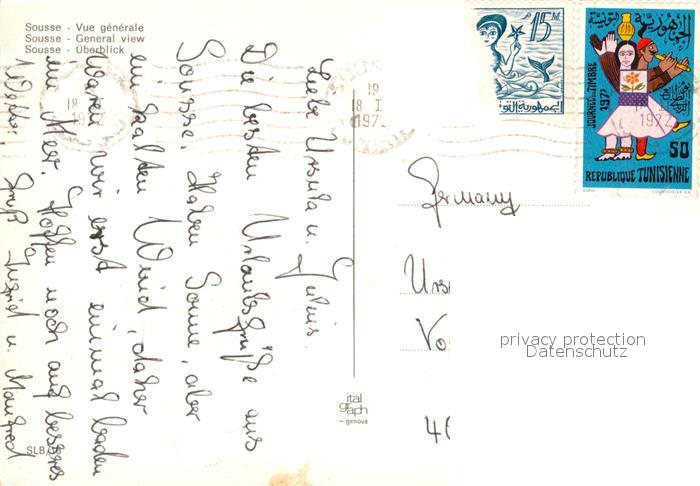 Sousse - Vue générale
Sousse - General view
Sousse - Überblick
Liebe Ursula u. Julius.
Die besten Urlaubsgrüße aus
Sousse. Haben Sonne, aber
ein kalten Wind, daher
waren wir erst einmal baden
im Meer. Hoffen noch auf besseres
Wetter. Gruß Ingrid u. Manfred
15 M
الجمهورية التو
19
18 I
197
18
1972
الجمهورية التونسية
JOURNÉE DU TIMBRE
1972
1972
50
REPUBLIQUE TUNISIENNE
Germany
Urs
Vo
46
ital
graph
- genova
SLB/
privacy protection
Datenschutz